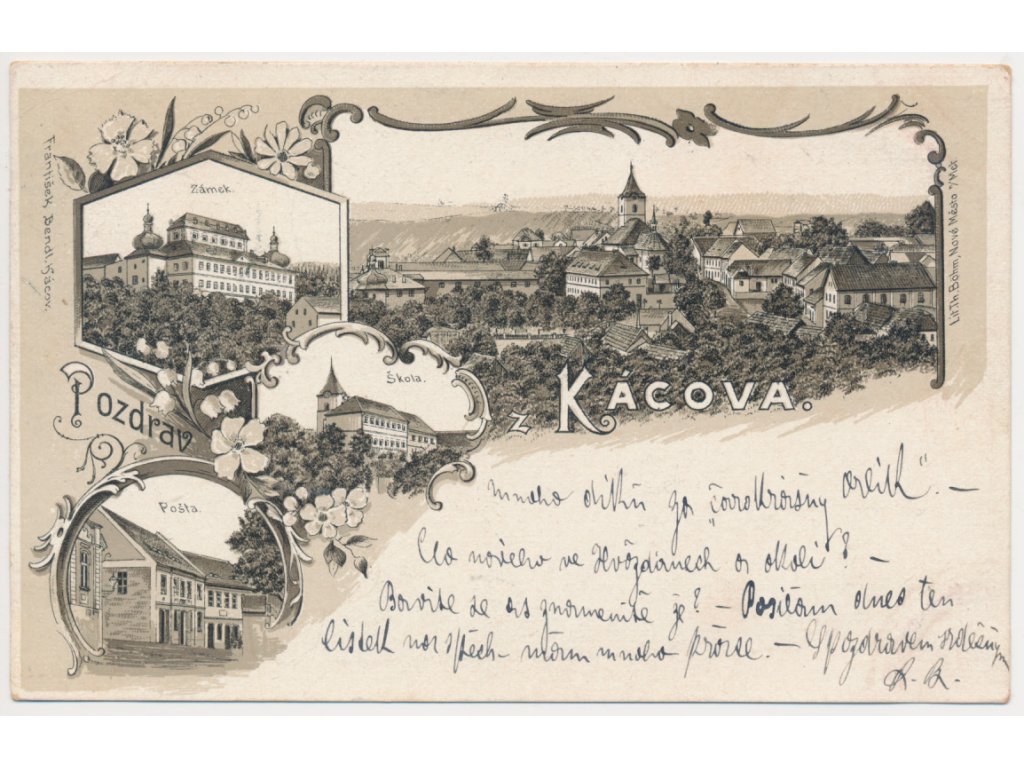 František Bendl, Kácov.
Zámek.
Lit. Th. Böhm, Nové Město n/Met
Škola.
Pozdrav z Kácova.
Pošta.
mnoho díků za „čarokrásný
Co nového ve Hvožďanech a okolí? –
Bavíte se as znamenitě že? – Posílám dnes ten
lístek na spěch – mám mnoho práce. – S pozdravem srdečným